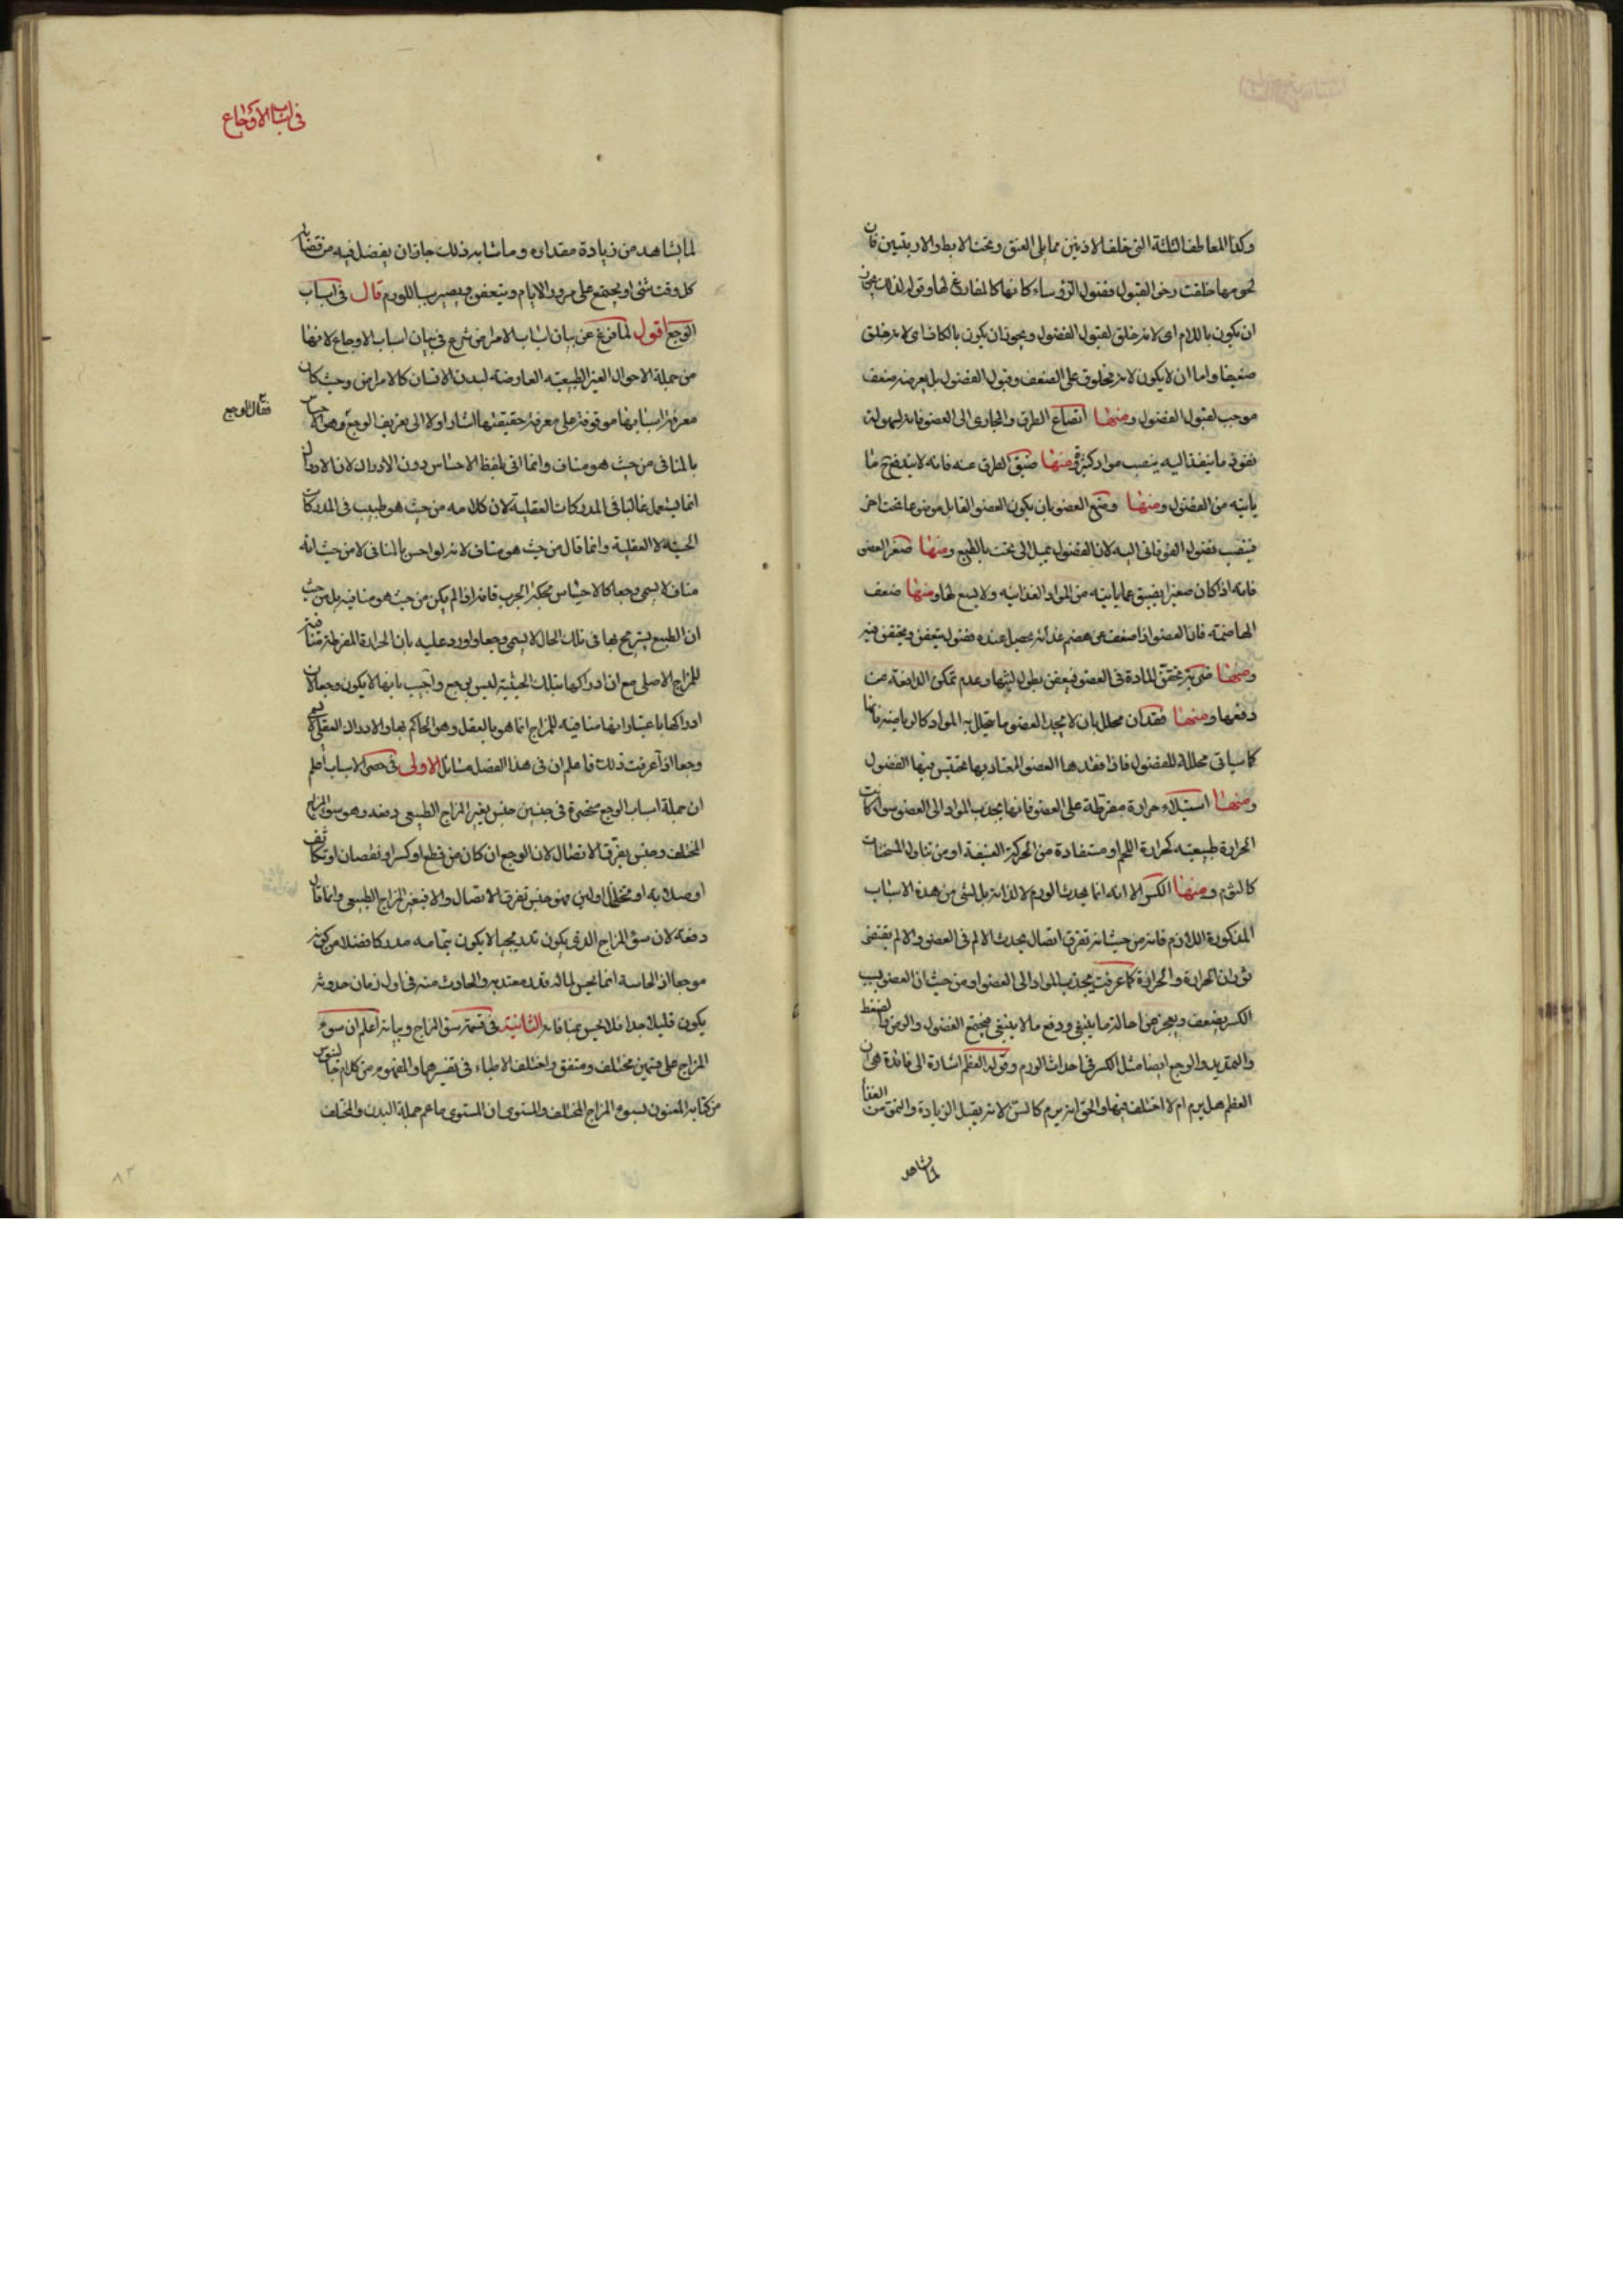 وكذا المعاطف الثلثة التى خلف الاذنين مما يلى العنق وتحت الابط والاربيتين فان
لحومها خلقت رخوا لقبول فضول الرؤساء كانها كالمفارغ لها وقوله لذلك يجوز
ان يكون باللام اى لانه خلق لقبول الفضول ويجوز ان يكون بالكاف اى لانه خلق
ضعيفا واما ان لا يكون لانه مخلوق على الضعف وقبول الفضول بل يعرضه ضعف
موجب لقبول الفضول ومنها اتساع الطرق والمجارى الى العضو فانه لسهولة
نفوذ ما ينفذ اليه ينصب مواد كثيرة ومنها ضيق الطرق عنه فانه لا يندفع ما
ياتيه من الفضول ومنها وضع العضو بان يكون العضو القابل موضوعا تحت اخر
فينصب فضول الفوقانى اليه لان الفضول يميل الى تحت بالطبع ومنها صغر العضو
فانه اذا كان صغيرا يضيق عما ياتيه من المواد الغذائيه ولا يسع لها ومنها ضعف
الهاضمة فان العضو اذا ضعف عن هضم غذائه يحصل عنده فضول يتعفن ويحتقن فيه
ومنها تحقن المادة فى العضو فيعفن بطول لبثها وعدم تمكن الدافعة من
دفعها ومنها فقدان محلل بان لا يجد العضو ما يتحلل به المواد كالرياضة فانها
كما سياتى محللة للفضول فاذا فقدها العضو المعتاد بها تحتبس فيها الفضول
ومنها استيلاء حرارة مفرطة على العضو فانها يجذب المواد الى العضو سواء كانت
الحرارة طبيعيه كحرارة اللحم او مستفادة من الحركة العنيفة او من تناول المسخنات
كالثوم ومنها الكسر الا انه انما يحدث الورم لا لذاته بل لشى من هذه الاسباب
المذكورة اللازم فانه من حيث انه تفرق اتصال يحدث الالم فى العضو والالم يقتضى
ثوران الحرارة والحرارة كما عرفت يجذب المواد الى العضو او من حيث ان العضو بسبب
الكسر يضعف ويعجز عن احالة ما ينبغى ودفع ما لا ينبغى فيجتمع الفضول والوهن والضغط
والتمديد والوجع ايضا مثل الكسر فى احداث الورم وقوله العظم اشارة الى فائدة هى ان
العظم هل يرم ام لا اختلف فيها والحق انه يرم كالسن لانه يقبل الزيادة والنمو من الغذاء
لما يشاهد
فى اسباب الاوجاع
لما يشاهد من زيادة مقداره وما شابه ذلك جاز ان يفضل فيه من فضلته
كل وقت شئ او يجتمع على مرور الايام ويتعفن ويصير سببا للورم قال فى اسباب
الوجع اقول لما فرغ عن بيان اسباب الامراض شرع فى بيان اسباب الاوجاع لانها
من جملة الاحوال الغير الطبيعيه العارضة لبدن الانسان كالامراض وحيث كان
معرفة اسبابها موقوفة على معرفة حقيقتها اشار اولا الى تعريف الوجع وهو احساس
فقال الوجع
بالمنافى من حيث هو مناف وانما اتى بلفظ الاحساس دون الادراك لان الادراك
انما يستعمل غالبا فى المدركات العقلية لان كلامه من حيث هو طبيب فى المدركات
الحسية لا العقلية وانما قال من حيث هو مناف لانه لو احس بالمنافى لا من حيث انه
مناف لا يسمى وجعا كالاحساس بحكة الجرب فانه اذا لم يكن من حيث هو منافيه بل من حيث
ان الطبع يستريح بها فى تلك الحال لا يسمى وجعا واورد عليه بان الحرارة المفرطة منافية
للمزاج الاصلى مع ان ادراكها بتلك الحيثية ليس بوجع واجيب بانها لا يكون وجعا لان
ادراكها باعتبار انها منافيه للمزاج انما هو بالعقل وهو الحاكم بها والادراك العقلى لا يسمى
وجعا اذا عرفت ذلك فاعلم ان فى هذا الفصل مسائل الاولى فى حصر الاسباب اعلم
ان جملة اسباب الوجع منحصرة فى جنسين جنس يغير المزاج الطبيعى دفعة وهو سوء المزاج
المختلف وجنس يفرق الاتصال لان الوجع ان كان من قطع او كسر او نقصان او تكاثف
او صلابه او تخلخل او لين فهو جنس تفرق الاتصال والا فبتغير المزاج الطبيعى وانما قال
دفعة لان سوء المزاج الذى يكون تدريجيا لا يكون بتمامه مدركا فضلا من كونه
موجعا اذ الحاسة انما يحس لما له قدر معتد به والحادث منه فى اول زمان حدوثه
يكون قليلا جدا فلا يحس بمنافاته الثانية فى قسمة سوء المزاج وبيانه اعلم ان سوء
المزاج على قسمين مختلف ومتفق واختلف الاطباء فى تفسيرهما والمفهوم من كلام جالينوس
من كتابه المعنون بسوء المزاج المختلف والمستوى ان المستوى ما عم جملة البدن والمختلف
٨٣